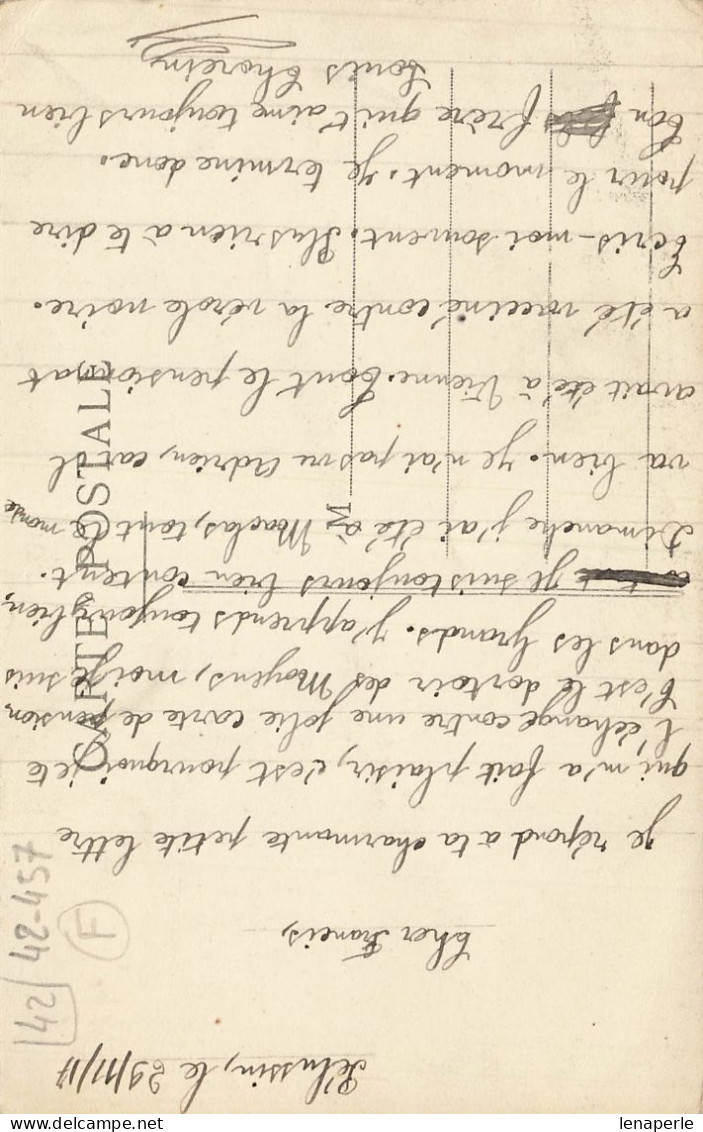 Pélussin, le 29/11/17
Cher Francis,
Je répond à ta charmante petite lettre
qui m'a fait plaisir, c'est pourquoi je te
l'échange contre une jolie carte de pension.
C'est le dortoir des Moyens, moi je suis
dans les Grands. J'apprends toujours bien,
Je suis toujours bien content.
Dimanche j'ai été à Maclas, tout le monde
va bien. Je n'ai pas vu Adrien, car il
avait été à Vienne. Tout le pensionnat
a été vacciné contre la vérole noire.
Ecris-moi souvent. Plus rien à te dire
pour le moment. Je termine donc.
Ton frère qui t'aime toujours bien
Louis Chorein
CARTE POSTALE
M
42
42-457
F
lenaperle